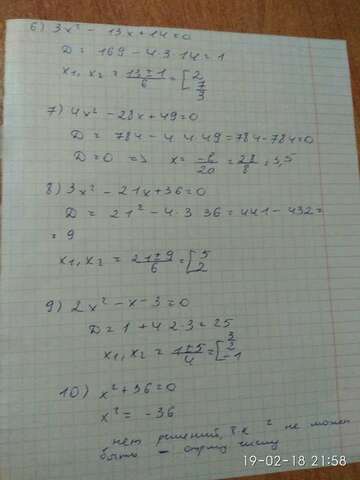 6) 3x² - 13x + 14 = 0
D = 169 - 4·3·14 = 1
x₁, x₂ = 13±1/6 = [2 7/3
7) 4x² - 28x + 49 = 0
D = 784 - 4·4·49 = 784 - 784 = 0
D = 0 => x = -b/2a = 28/8 = 3,5
8) 3x² - 21x + 36 = 0
D = 21² - 4·3·36 = 441 - 432 =
= 9
x₁, x₂ = 21±9/6 = [5 2
9) 2x² - x - 3 = 0
D = 1 + 4·2·3 = 25
x₁, x₂ = 1±5/4 = [3/2 -1
10) x² + 36 = 0
x² = -36
нет решений, т.к ² не может
быть = отриц числу
19-02-18 21:58